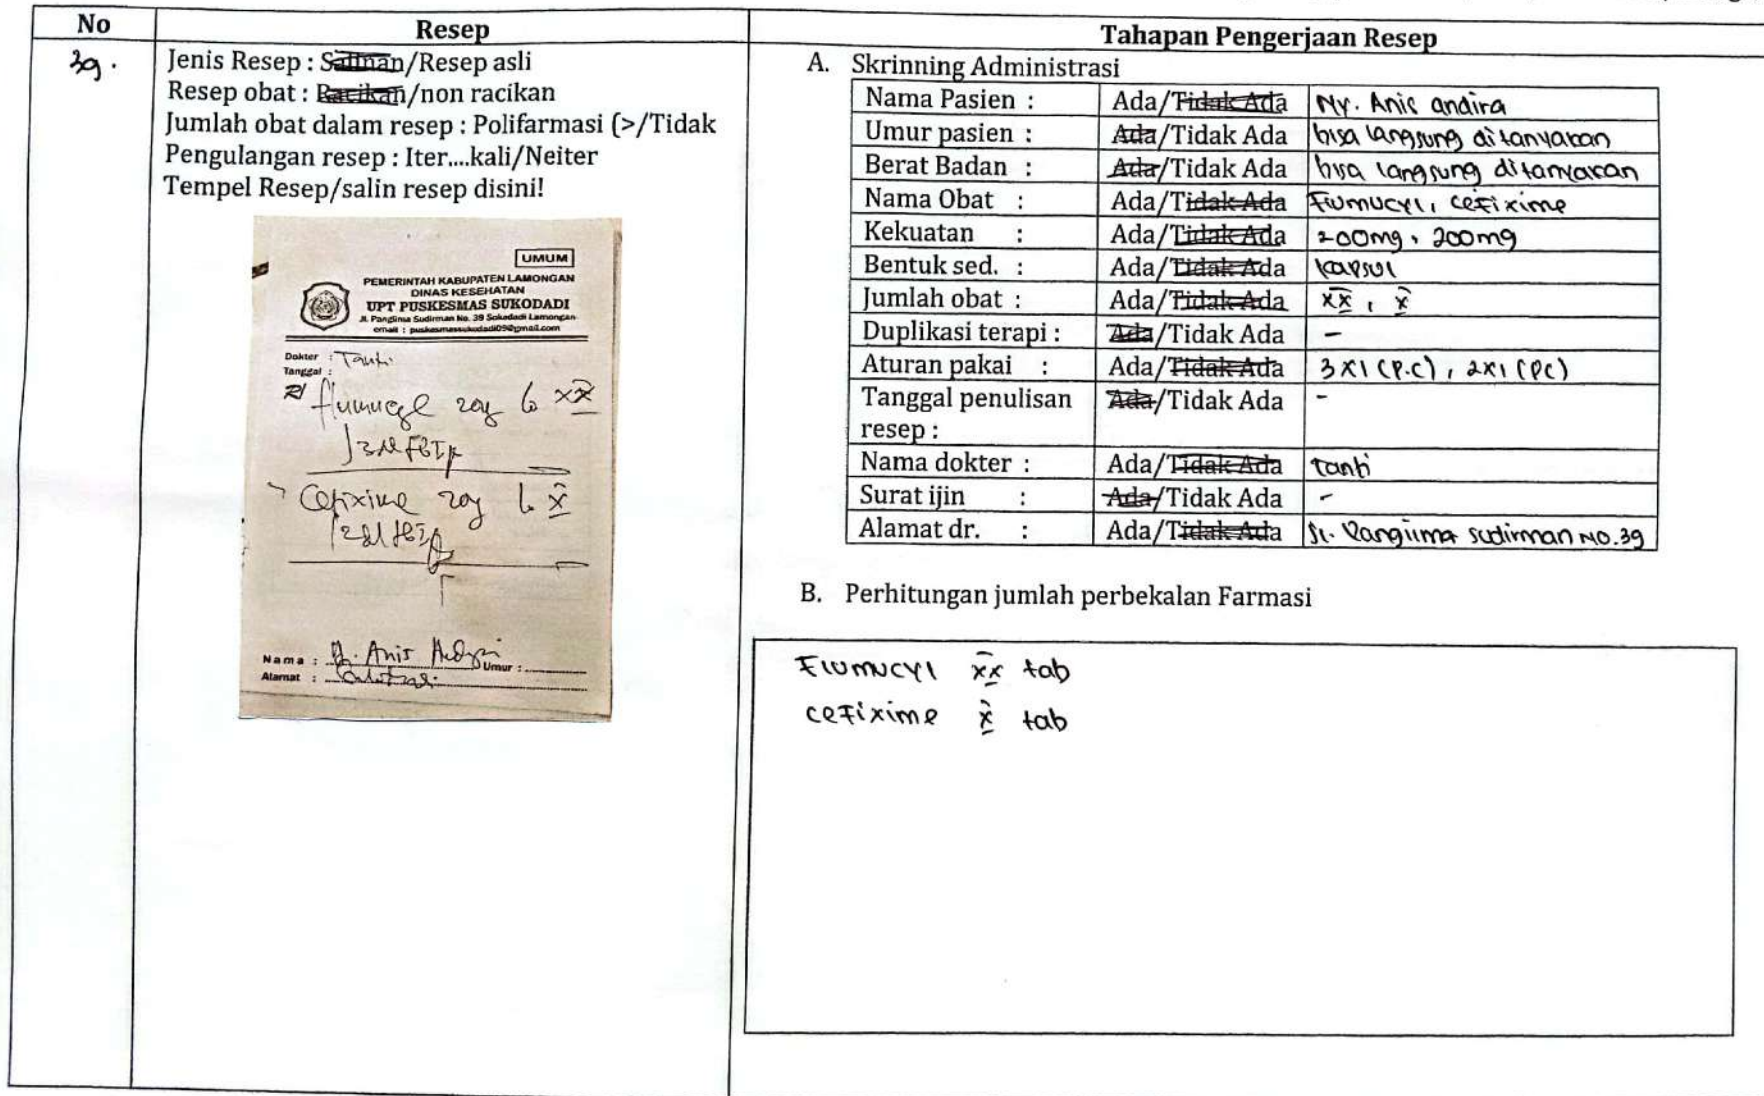 No
Resep
Tahapan Pengerjaan Resep
39.
Jenis Resep : Salinan/Resep asli
Resep obat : Racikan/non racikan
Jumlah obat dalam resep : Polifarmasi (>/Tidak
Pengulangan resep : Iter....kali/Neiter
Tempel Resep/salin resep disini!
UMUM
PEMERINTAH KABUPATEN LAMONGAN
DINAS KESEHATAN
UPT PUSKESMAS SUKODADI
Jl. Panglima Sudirman No. 39 Sukodadi Lamongan
email : puskesmassukodadi09@gmail.com
Dokter : Tanti
Tanggal :
R/
XX
Cefixime X
Nama : Anis Umur :
Alamat :
A. Skrinning Administrasi
Nama Pasien : Ada/Tidak Ada Ny. Anis andira
Umur pasien : Ada/Tidak Ada bisa langsung ditanyakan
Berat Badan : Ada/Tidak Ada bisa langsung ditanyakan
Nama Obat : Ada/Tidak Ada Flumucyl, cefixime
Kekuatan : Ada/Tidak Ada 200mg, 200mg
Bentuk sed. : Ada/Tidak Ada kapsul
Jumlah obat : Ada/Tidak Ada xx, x
Duplikasi terapi : Ada/Tidak Ada -
Aturan pakai : Ada/Tidak Ada 3x1 (P.C), 2x1 (PC)
Tanggal penulisan Ada/Tidak Ada -
resep :
Nama dokter : Ada/Tidak Ada tanti
Surat ijin : Ada/Tidak Ada -
Alamat dr. : Ada/Tidak Ada Jl. Panglima sudirman NO.39
B. Perhitungan jumlah perbekalan Farmasi
Flumucyl xx tab
cefixime x tab